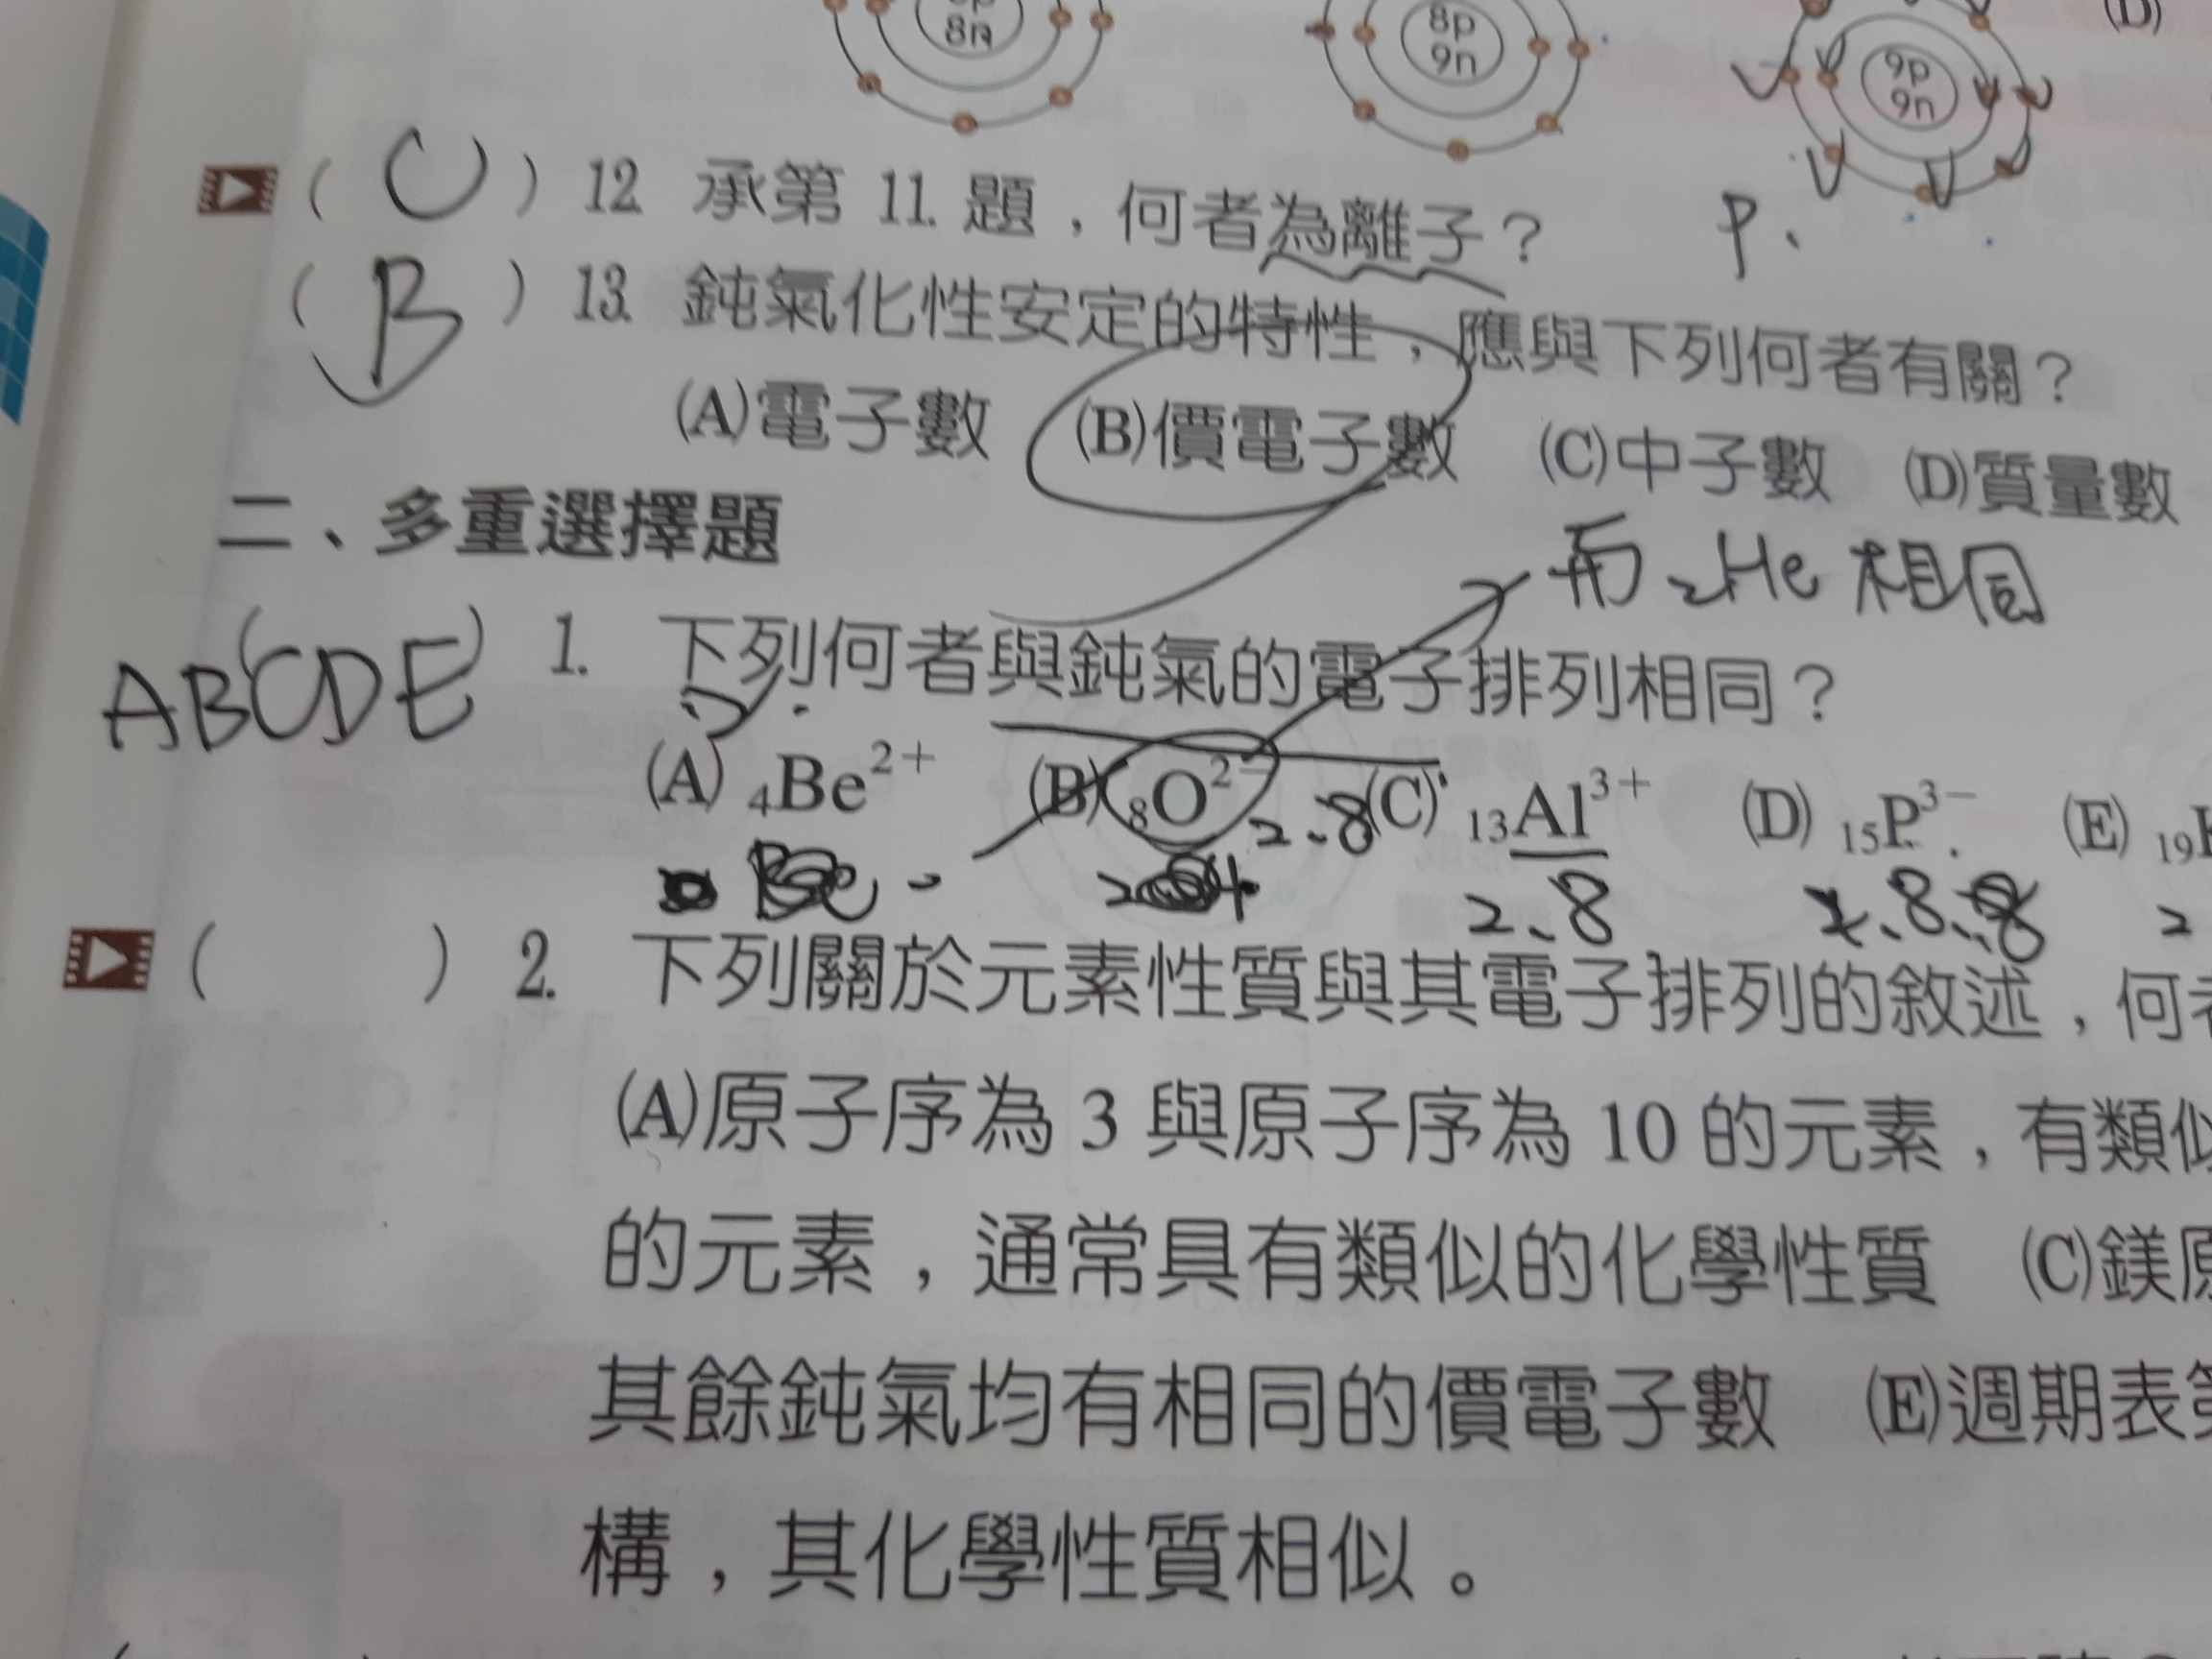 8n
8p
9n
9p
9n
(D)
( C ) 12. 承第 11. 題，何者為離子？
P、
( B ) 13. 鈍氣化性安定的特性，應與下列何者有關？
(A)電子數 (B)價電子數 (C)中子數 (D)質量數
二、多重選擇題
₂He 相同
(ABCDE) 1. 下列何者與鈍氣的電子排列相同？
(A) ₄Be²⁺ (B) ₈O²⁻ (C) ₁₃Al³⁺ (D) ₁₅P³⁻ (E) ₁₉
2.8
2.8 2.8.8 2
( ) 2. 下列關於元素性質與其電子排列的敘述，何
(A)原子序為 3 與原子序為 10 的元素，有類似
的元素，通常具有類似的化學性質 (C)鎂原
其餘鈍氣均有相同的價電子數 (E)週期表第
構，其化學性質相似。